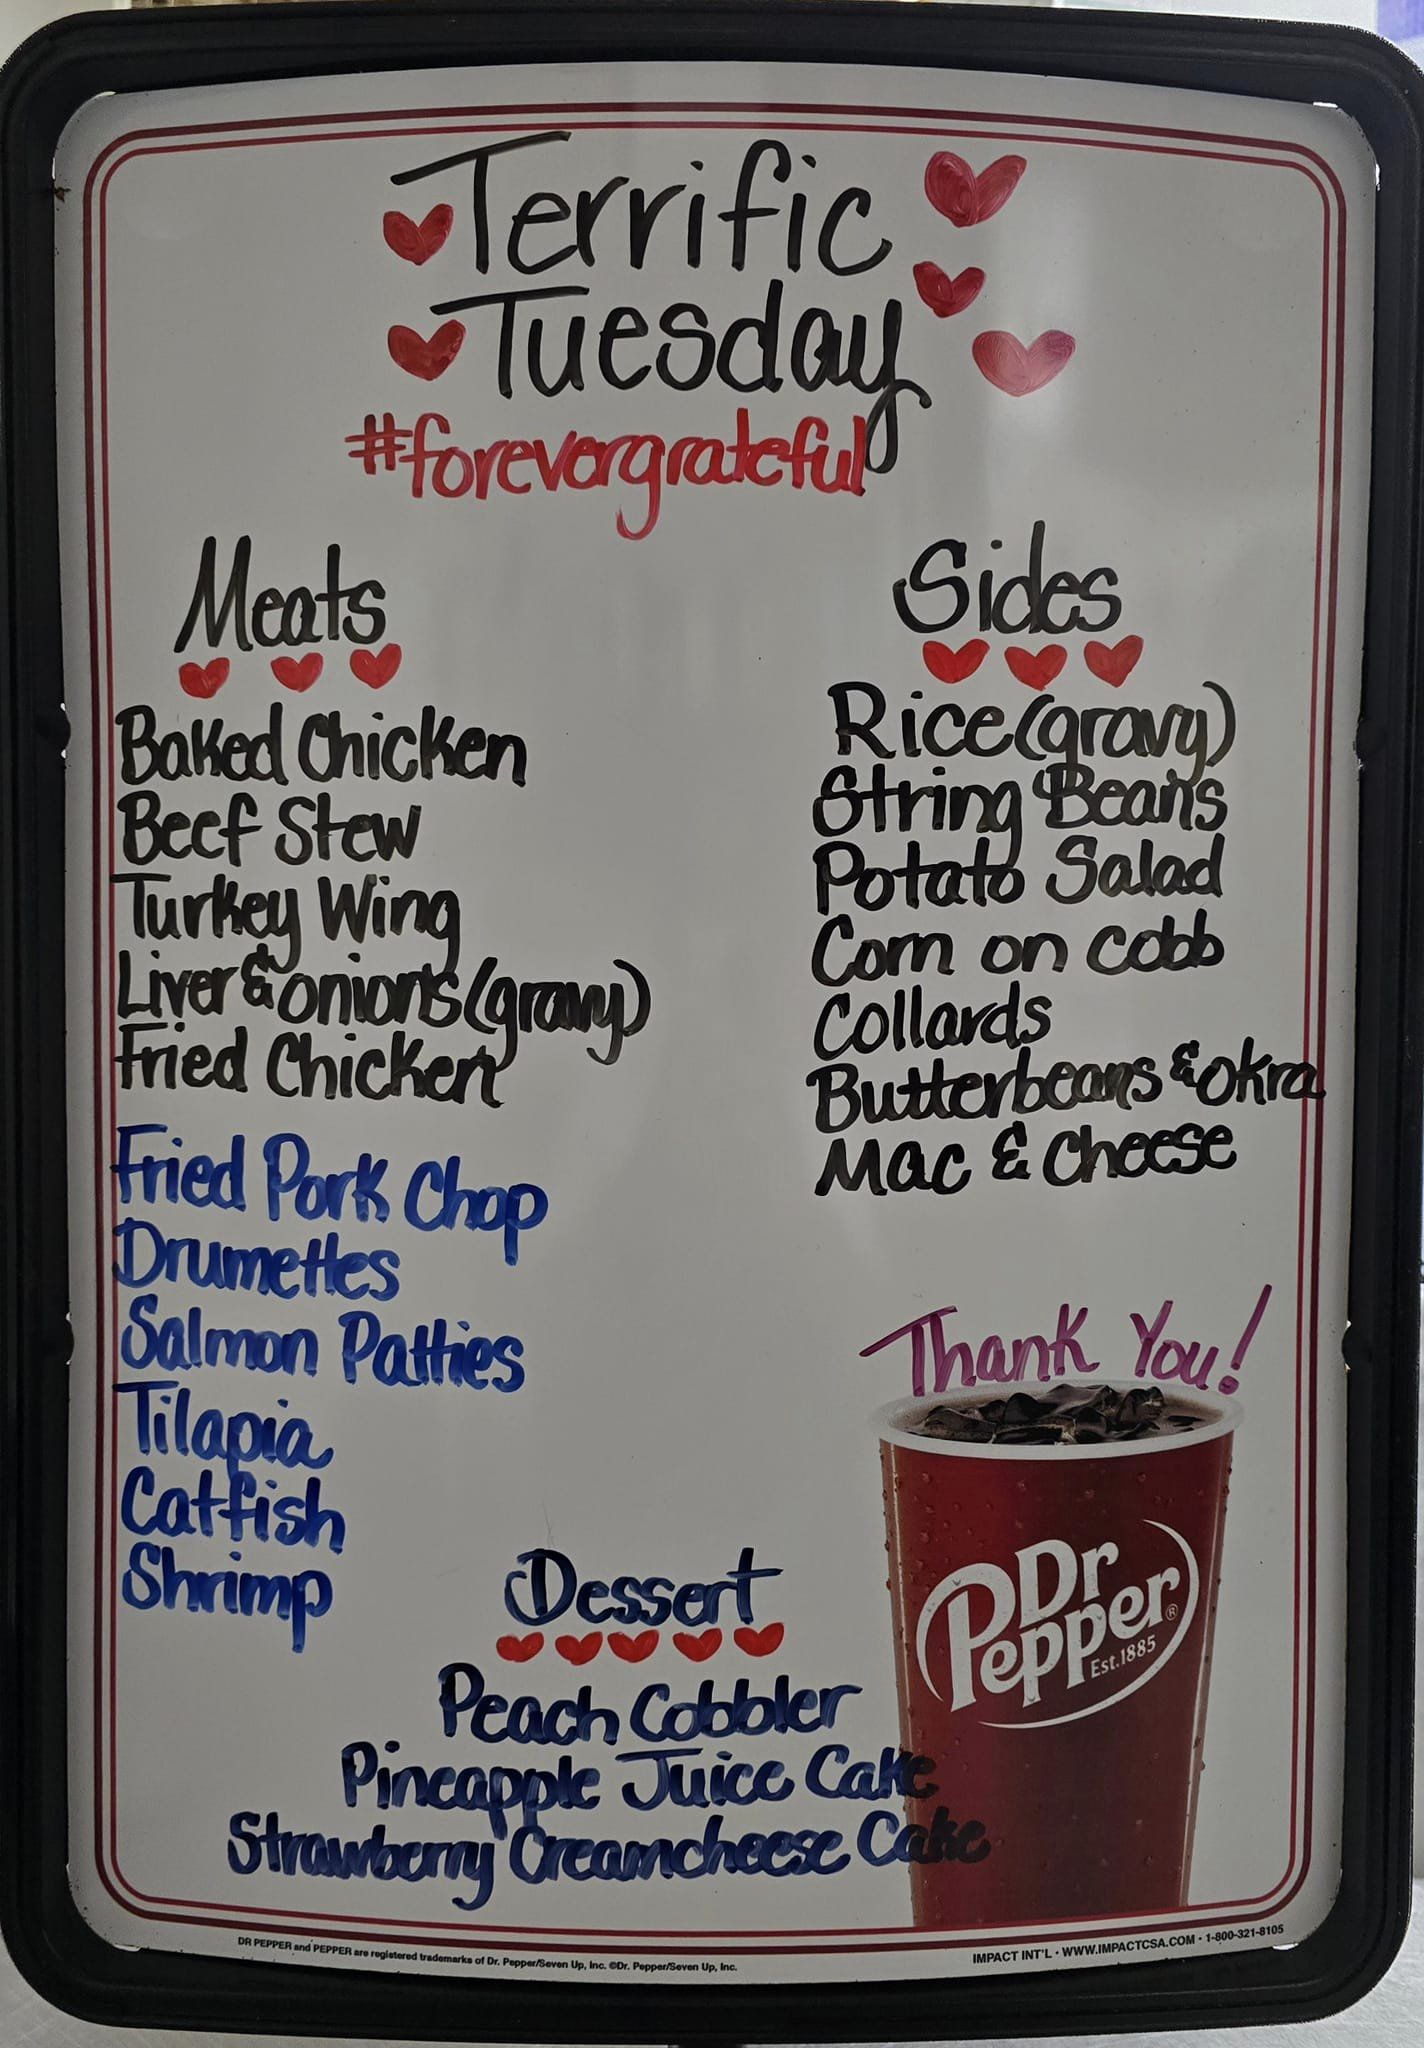 Terrific
Tuesday
#forevergrateful
Meats
Baked Chicken
Beef Stew
Turkey Wing
Liver & onions (gravy)
Fried Chicken
Fried Pork Chop
Drumettes
Salmon Patties
Tilapia
Catfish
Shrimp
Sides
Rice (gravy)
String Beans
Potato Salad
Corn on cobb
Collards
Butterbeans & okra
Mac & Cheese
Thank You!
Dr
Pepper®
Est.1885
Dessert
Peach Cobbler
Pineapple Juice Cake
Strawberry Creamcheese Cake
DR PEPPER and PEPPER are registered trademarks of Dr. Pepper/Seven Up, Inc. ©Dr. Pepper/Seven Up, Inc.
IMPACT INT'L • WWW.IMPACTCSA.COM • 1-800-321-8105